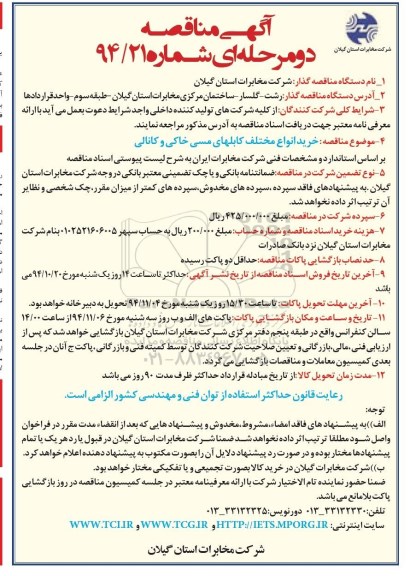 شرکت مخابرات استان گیلان
آگهی مناقصه
دو مرحله‌ای شماره ۹۴/۲۱
۱_نام دستگاه مناقصه گذار: شرکت مخابرات استان گیلان
۲_آدرس دستگاه مناقصه گذار: رشت-گلسار-ساختمان مرکزی مخابرات استان گیلان-طبقه سوم-واحد قراردادها
۳-شرایط کلی شرکت کنندگان: از کلیه شرکت های تولید کننده داخلی واجد شرایط دعوت بعمل می آید با ارائه
معرفی نامه معتبر جهت دریافت اسناد مناقصه به آدرس مذکور مراجعه نمایند.
۴-موضوع مناقصه: خرید انواع مختلف کابلهای مسی خاکی و کانالی
بر اساس استاندارد و مشخصات فنی شرکت مخابرات ایران به شرح لیست پیوستی اسناد مناقصه
۵-نوع تضمین شرکت در مناقصه: ضمانتنامه بانکی و یا چک تضمینی معتبر بانکی در وجه شرکت مخابرات استان
گیلان. به پیشنهادهای فاقد سپرده، سپرده های مخدوش، سپرده های کمتر از میزان مقرر، چک شخصی و نظایر
آن ترتیب اثر داده نخواهد شد.
۶-سپرده شرکت در مناقصه: مبلغ ۴۲۵/۰۰۰/۰۰۰ ریال
۷-هزینه خرید اسناد مناقصه و شماره حساب: مبلغ ۲۰۰/۰۰۰ ریال به حساب سپهر ۰۱۰۲۵۲۱۶۰۶۰۰۵ بنام شرکت
مخابرات استان گیلان نزد بانک صادرات
۸-حد نصاب بازگشایی پاکات مناقصه: حداقل دو پاکت رسیده
۹-آخرین تاریخ فروش اسناد مناقصه از تاریخ نشر آگهی: حداکثر تا ساعت ۱۴ روز یک شنبه مورخ ۹۴/۱۰/۲۰ می
باشد
۱۰-آخرین مهلت تحویل پاکات: تا ساعت ۱۵/۳۰ روز یک شنبه مورخ ۹۴/۱۱/۰۴ تحویل به دبیرخانه خواهد بود.
۱۱-تاریخ و ساعت و مکان بازگشایی پاکات: پاکت های الف و ب روز سه شنبه مورخ ۹۴/۱۱/۰۶ از ساعت ۱۴/۰۰
سالن کنفرانس واقع در طبقه پنجم دفتر مرکزی شرکت مخابرات استان گیلان بازگشایی خواهد شد که پس از
ارزیابی فنی، مالی، بازرگانی و تعیین صلاحیت شرکت کنندگان توسط کمیته فنی و بازرگانی، پاکت ج آنان در جلسه
بعدی کمیسیون معاملات و مناقصات بازگشایی می گردد.
۱۲-مدت زمان تحویل کالا: از تاریخ مبادله قرارداد حداکثر ظرف مدت ۹۰ روز می باشد
رعایت قانون حداکثر استفاده از توان فنی و مهندسی کشور الزامی است.
توجه:
الف) به پیشنهادهای فاقد امضاء، مشروط، مخدوش و پیشنهادهایی که بعد از انقضاء مدت مقرر در فراخوان
واصل شود مطلقا ترتیب اثر داده نخواهد شد ضمنا شرکت مخابرات استان گیلان در قبول یا رد هر یک یا تمام
پیشنهادها مختار بوده و در صورت رد پیشنهاد دلایل آن را بصورت مکتوب به پیشنهاد دهنده اعلام خواهد کرد.
ب) شرکت مخابرات گیلان در خرید کالا بصورت تجمیعی و یا تفکیکی مختار خواهد بود.
ضمنا حضور نماینده تام الاختیار شرکت با ارائه معرفینامه معتبر در جلسه کمیسیون مناقصه در روز بازگشایی
پاکت بلامانع می باشد.
تلفن: ۳۳۱۳۲۳۳۰_۰۱۳ دورنویس: ۳۳۱۳۲۳۲۵_۰۱۳
سایت اینترنتی: HTTP://IETS.MPORG.IR و WWW.TCG.IR و WWW.TCI.IR
شرکت مخابرات استان گیلان